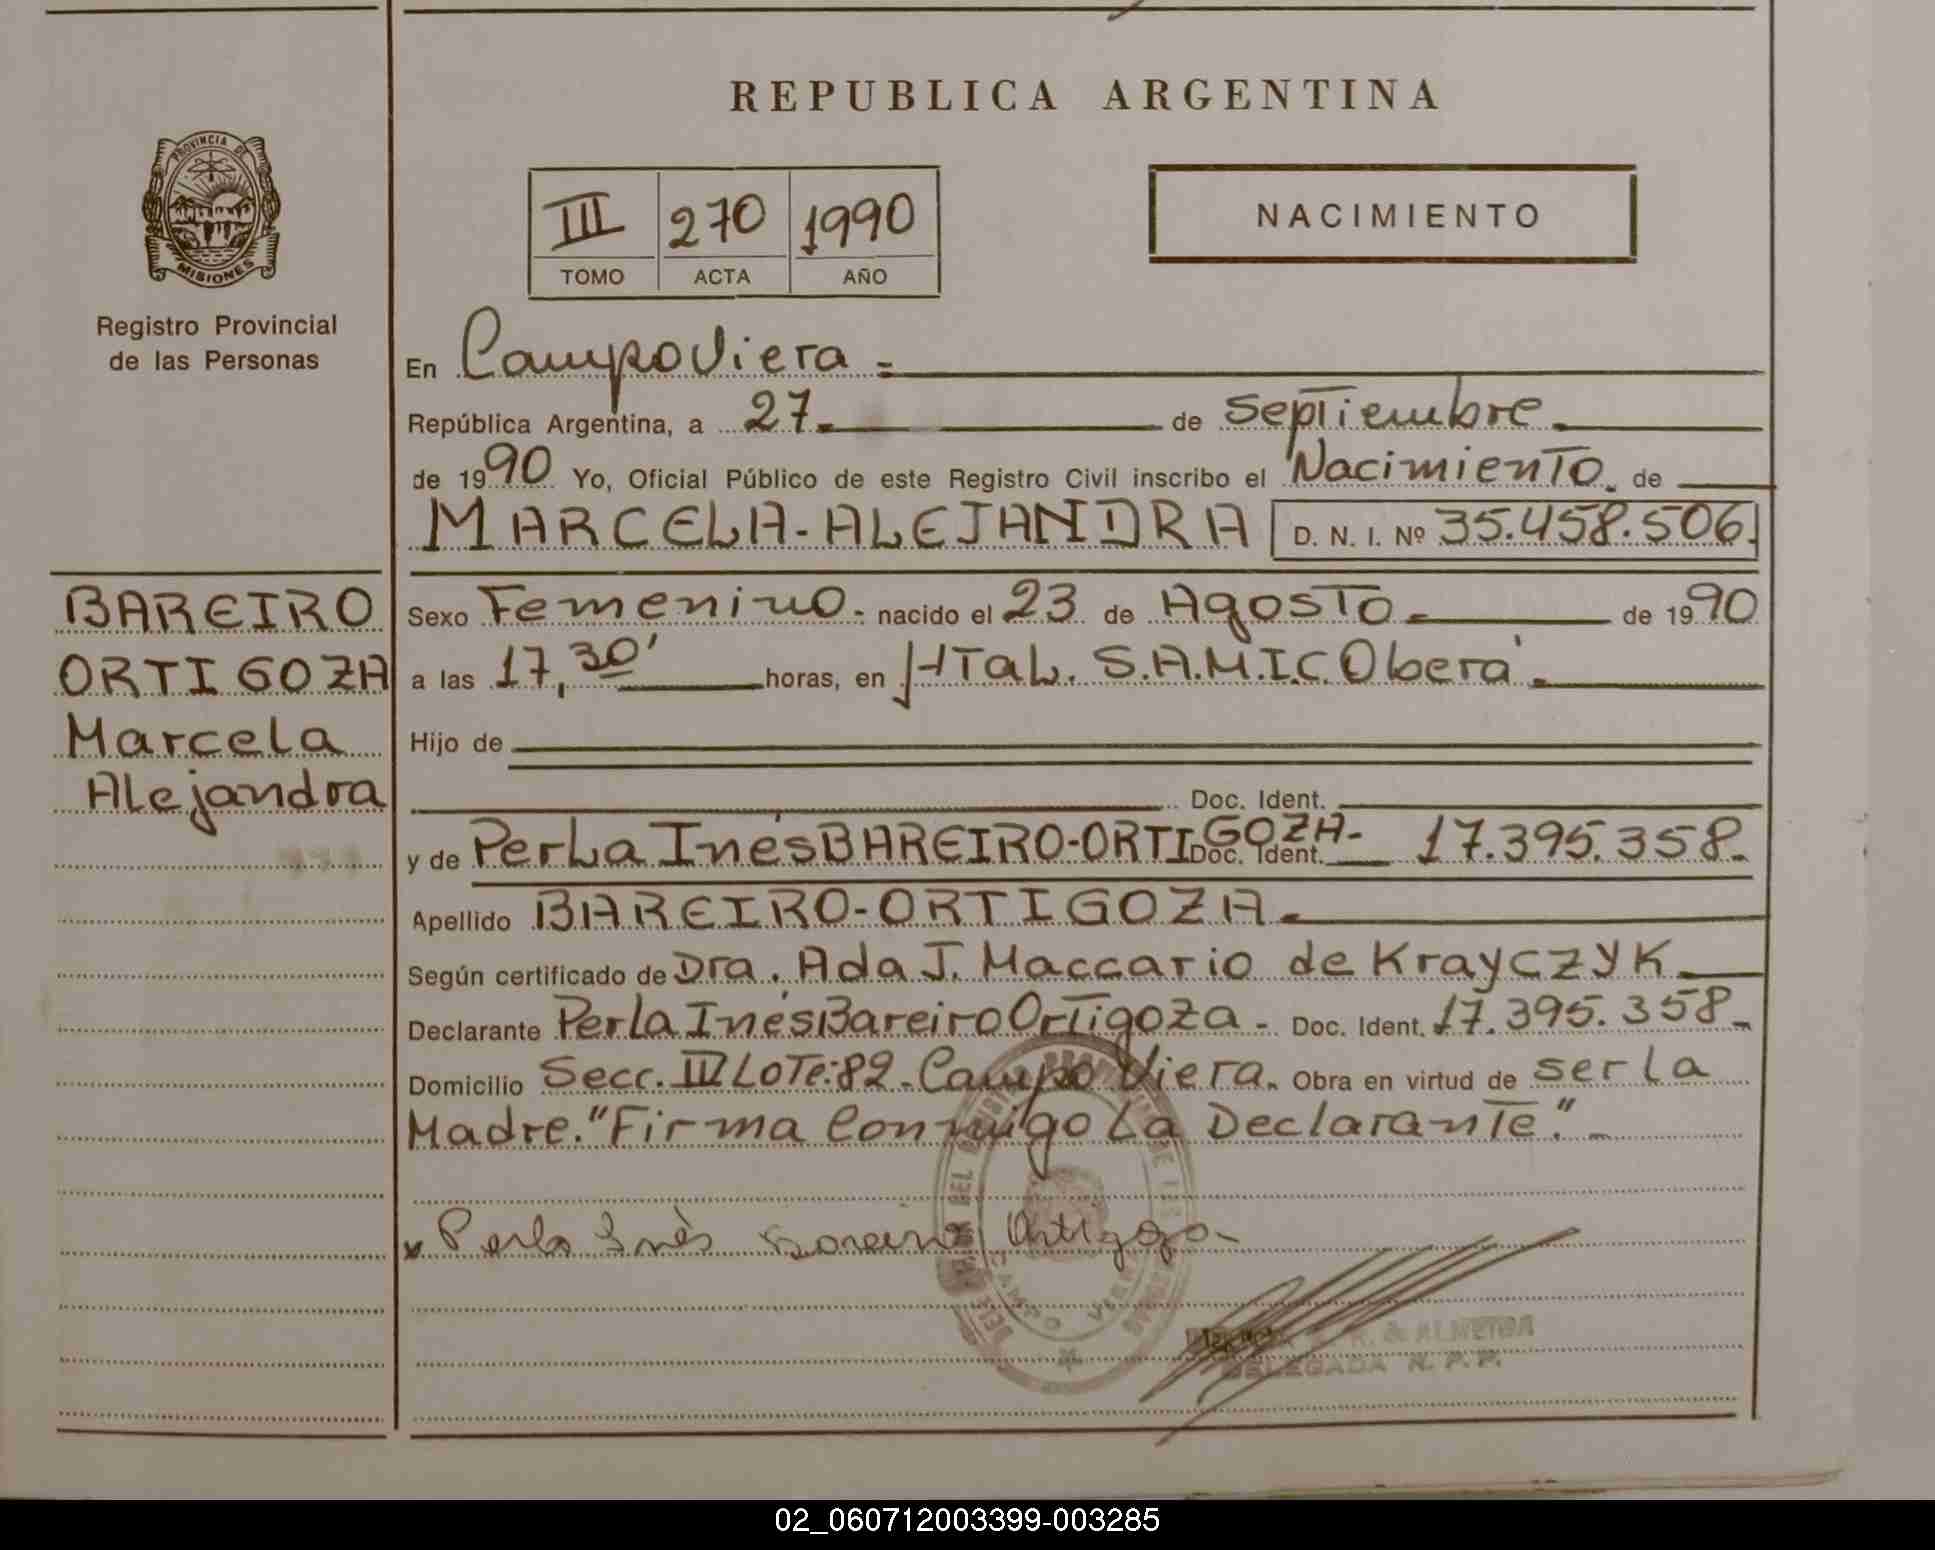 REPUBLICA ARGENTINA
PROVINCIA DE
MISIONES
Registro Provincial
de las Personas
III 270 1990
TOMO ACTA AÑO
NACIMIENTO
En Campo Viera
República Argentina, a 27 de septiembre
de 1990 Yo, Oficial Público de este Registro Civil inscribo el Nacimiento de
MARCELA-ALEJANDRA D. N. I. Nº 35.458.506.
BAREIRO
ORTIGOZA
Marcela
Alejandra
Sexo Femenino. nacido el 23 de Agosto de 1990
a las 17,30' horas, en HTaL. S.A.M.I.C. Oberá
Hijo de
Doc. Ident.
y de Perla Inés BAREIRO-ORTIGOZA- Doc. Ident. 17.395.358.
Apellido BAREIRO-ORTIGOZA
Según certificado de Dra. Ada J. Maccario de Krayczyk
Declarante Perla Inés Bareiro Ortigoza - Doc. Ident. 17.395.358
Domicilio Secc. IV Lote:82. Campo Viera. Obra en virtud de ser la
Madre. "Firma Conmigo La Declarante."
x Perla Inés Bareiro Ortigoza
CAMPO VIERA
R. de ALMEIDA
DELEGADA R. P. P.
02_060712003399-003285